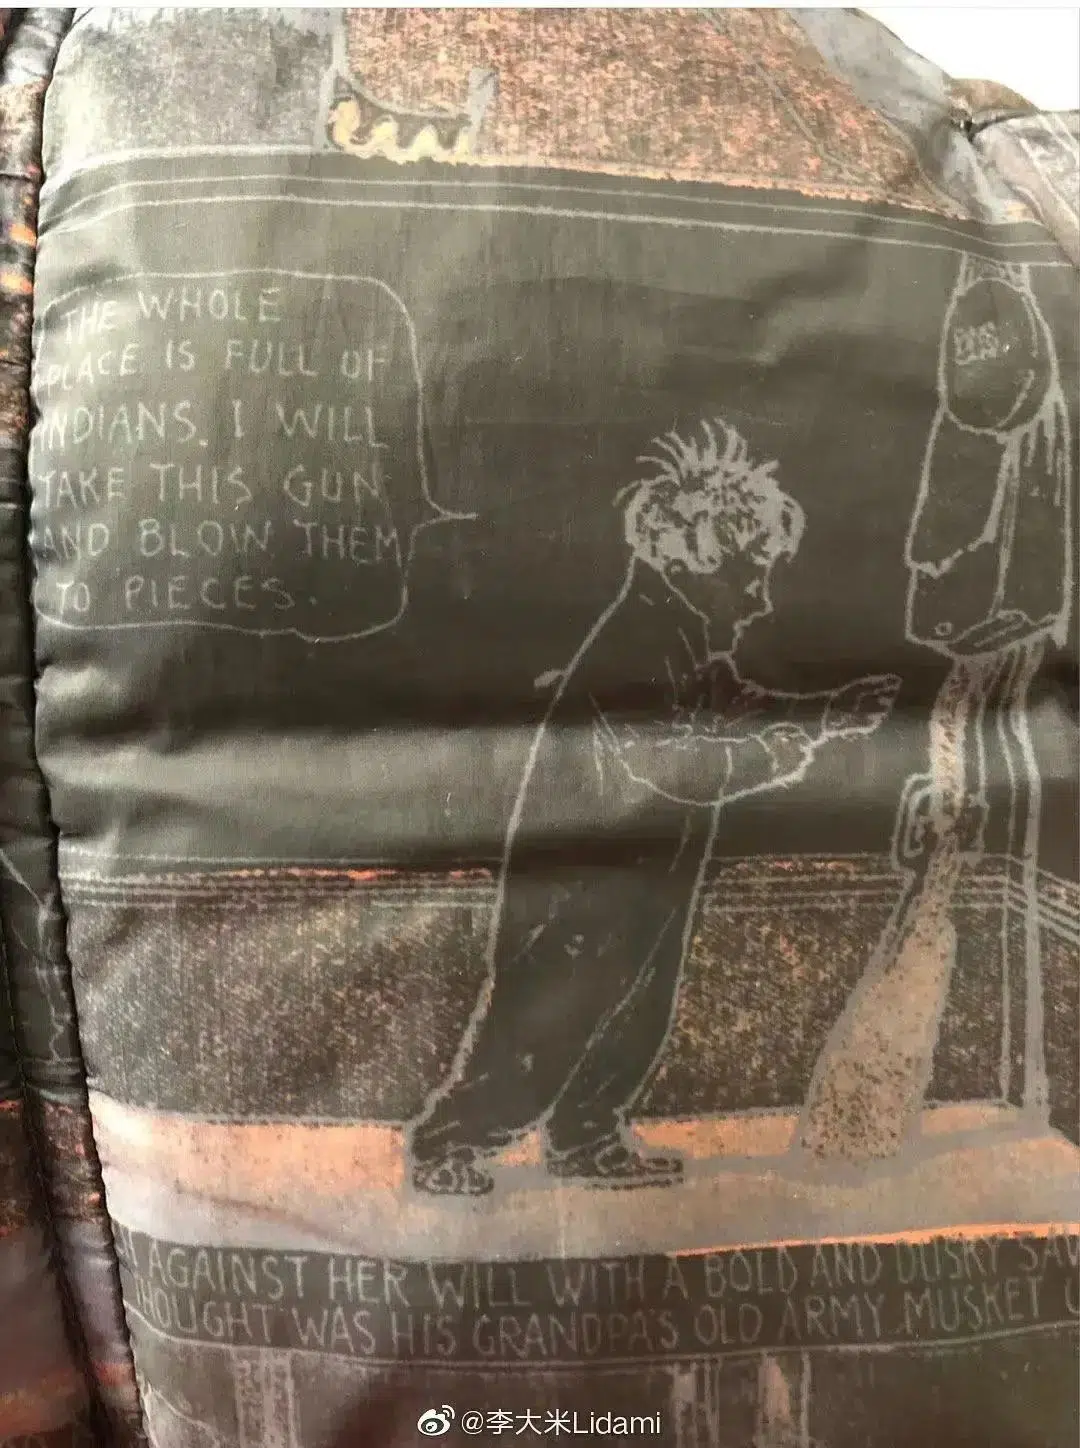 THE WHOLE
PLACE IS FULL OF
INDIANS. I WILL
TAKE THIS GUN
AND BLOW THEM
TO PIECES.
AGAINST HER WILL WITH A BOLD AND DUSKY SAV
THOUGHT WAS HIS GRANDPA'S OLD ARMY MUSKET U
@李大米Lidami